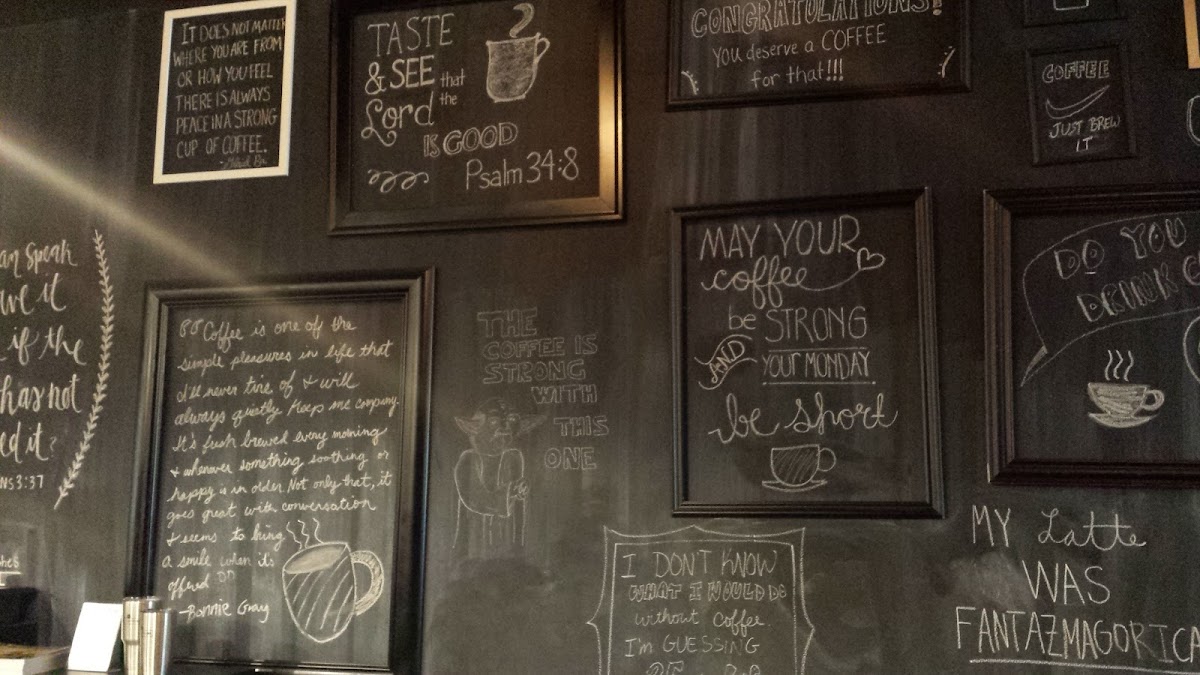 IT DOES NOT MATTER
WHERE YOU ARE FROM
OR HOW YOU FEEL
THERE IS ALWAYS
PEACE IN A STRONG
CUP OF COFFEE.
TASTE
& SEE that
the
Lord
IS GOOD
Psalm 34:8
CONGRATULATIONS!
YOU deserve a COFFEE
for that!!!
COFFEE
JUST BREW
IT
an speak
if the
has not
ed it?
NS 3:37
Coffee is one of the
simple pleasures in life that
I'll never tire of & will
always quietly keep me company.
It's fresh brewed every morning
& whenever something soothing or
happy is in order. Not only that, it
goes great with conversation
& seems to bring
a smile when it's
offered
-Bonnie Gray
THE
COFFEE IS
STRONG
WITH
THIS
ONE
MAY YOUR
coffee
be STRONG
AND
YOUR MONDAY
be short
DO YOU
DRINK
I DON'T KNOW
WHAT I WOULD DO
without coffee.
I'm GUESSING
MY Latte
WAS
FANTAZMAGORICA